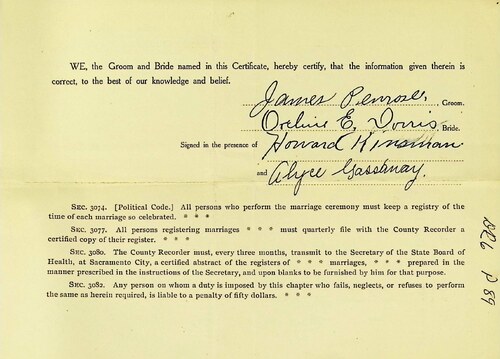 WE, the Groom and Bride named in this Certificate, hereby certify, that the information given therein is
correct, to the best of our knowledge and belief.
James Penrose, Groom.
E. Norris, Bride.
Signed in the presence of Howard Kinsman
and Alyce Gassaway.
SEC. 3074. [Political Code.] All persons who perform the marriage ceremony must keep a registry of
the time of each marriage so celebrated. * * *
SEC. 3077. All persons registering marriages * * * must quarterly file with the County Recorder
a certified copy of their register. * * *
SEC. 3080. The County Recorder must, every three months, transmit to the Secretary of the State Board of
Health, at Sacramento City, a certified abstract of the registers of * * * marriages, * * * prepared in the
manner prescribed in the instructions of the Secretary, and upon blanks to be furnished by him for that purpose.
SEC. 3082. Any person on whom a duty is imposed by this chapter who fails, neglects, or refuses to perform
the same as herein required, is liable to a penalty of fifty dollars. * * *
p 89